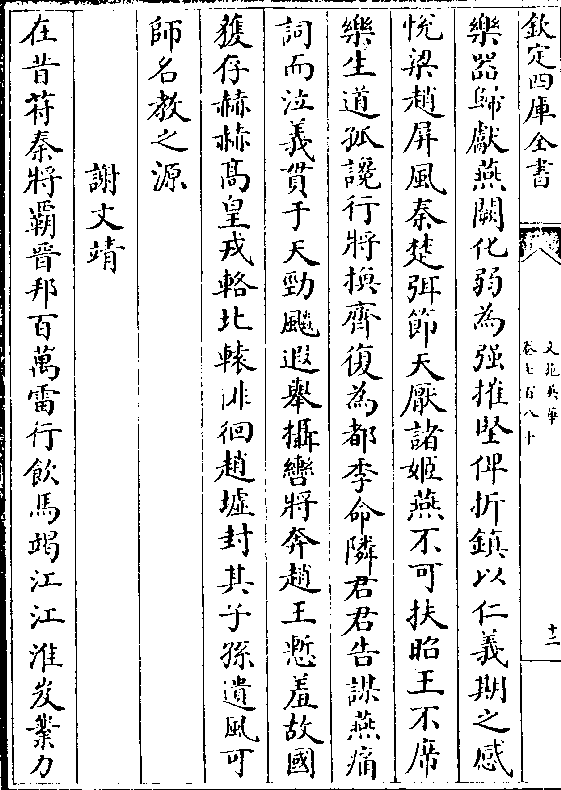 欽定四庫全書
文苑英華
卷七百八十
十二
樂器歸獻燕闕化弱為强摧堅俾折鎮以仁義期之感
悅梁趙屏風秦楚弭節天厭諸姬燕不可扶昭王不席
樂生道孤讒行將換齊復為都季命隣君君告謀燕痛
詞而泣義貫于天勁飈遐舉攝轡將奔趙王慙羞故國
獲存赫赫髙皇戎輅北轅徘徊趙墟封其子孫遺風可
師名教之源
謝文靖
在昔苻秦將覇晋邦百萬雷行飲馬竭江江淮岌業力